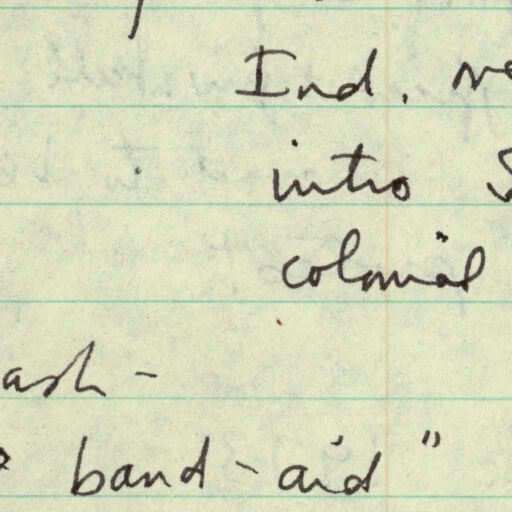 Ind.
intro
colonial
ash -
band-aid"